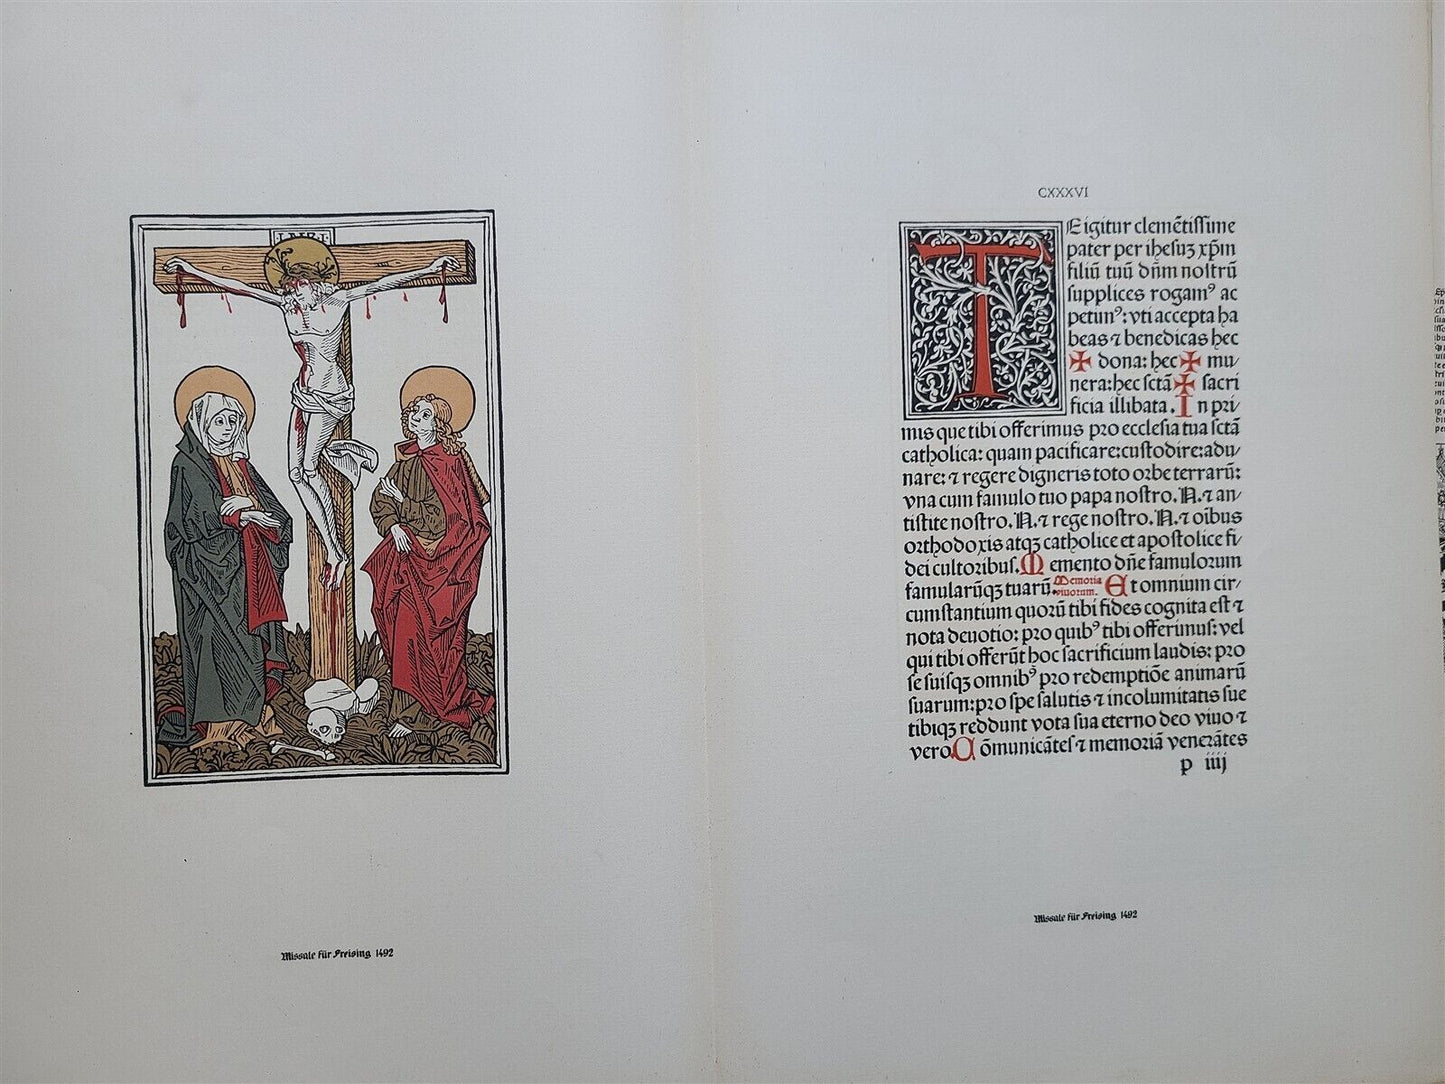 I·N·R·I·
Missale für Freising 1492
CXXXVI
TEigitur clemẽtissime
pater per ihesuʒ xp̃m
filiũ tuũ dñm nostrũ
supplices rogamꝰ ac
petunꝰ: vti accepta ha
beas ⁊ benedicas hec
✠ dona: hec ✠ mu⸗
nera: hec sctã ✠ sacri
ficia illibata. In pri⸗
mis que tibi offerimus pro ecclesia tua sctã
catholica: quam pacificare: custodire: adu⸗
nare: ⁊ regere digneris toto orbe terrarũ:
vna cum famulo tuo papa nostro. N. ⁊ an⸗
tistite nostro. N. ⁊ rege nostro. N. ⁊ oĩbus
orthodoxis atqꝫ catholice et apostolice fi⸗
dei cultoribus. Memento dñe famulorum
famularũqꝫ tuarũ. Memoria viuorum. Et omnium cir⸗
cumstantium quorũ tibi fides cognita est ⁊
nota deuotio: pro quibꝰ tibi offerimus: vel
qui tibi offerũt hoc sacrificium laudis: pro
se suisqꝫ omnibꝰ pro redemptiõe animarũ
suarum: pro spe salutis ⁊ incolumitatis sue
tibiqꝫ reddunt vota sua eterno deo viuo ⁊
vero. Cõmunicãtes ⁊ memoriã venerãtes
p iiij
Missale für Freising 1492